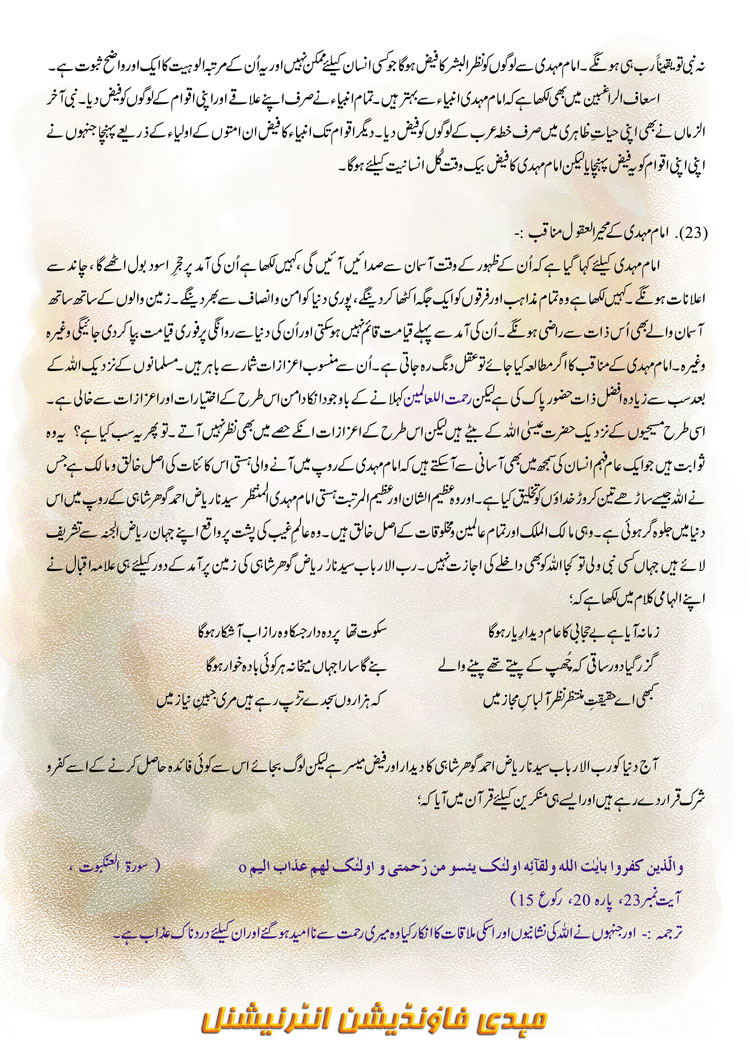 نہ نبی تو یقیناً رب ہی ہونگے۔ امام مہدی سے لوگوں کو نظر البشر کا فیض ہوگا جو کسی انسان کیلئے ممکن نہیں اور یہ اُن کے مرتبہ الوہیت کا ایک اور واضح ثبوت ہے۔
اسعاف الراغبین میں بھی لکھا ہے کہ امام مہدی انبیاء سے بہتر ہیں۔ تمام انبیاء نے صرف اپنے علاقے اور اپنی اقوام کے لوگوں کو فیض دیا۔ نبی آخر
الزماں نے بھی اپنی حیاتِ ظاہری میں صرف خطہ عرب کے لوگوں کو فیض دیا۔ دیگر اقوام تک انبیاء کا فیض ان امتوں کے اولیاء کے ذریعے پہنچا جنہوں نے
اپنی اپنی اقوام کو یہ فیض پہنچایا لیکن امام مہدی کا فیض بیک وقت کُل انسانیت کیلئے ہوگا۔
(23). امام مہدی کے محیر العقول مناقب :-
امام مہدی کیلئے کہا گیا ہے کہ اُن کے ظہور کے وقت آسمان سے صدائیں آئیں گی، کہیں لکھا ہے اُن کی آمد پر حجرِ اسود بول اٹھے گا، چاند سے
اعلانات ہونگے۔ کہیں لکھا ہے وہ تمام مذاہب اور فرقوں کو ایک جگہ اکٹھا کر دینگے، پوری دنیا کو امن و انصاف سے بھر دینگے۔ زمین والوں کے ساتھ ساتھ
آسمان والے بھی اُس ذات سے راضی ہونگے۔ اُن کی آمد سے پہلے قیامت قائم نہیں ہوسکتی اور اُن کی دنیا سے روانگی پر فوری قیامت بپا کر دی جائیگی وغیرہ
وغیرہ۔ امام مہدی کے مناقب کا اگر مطالعہ کیا جائے تو عقل دنگ رہ جاتی ہے۔ اُن سے منسوب اعزازات شمار سے باہر ہیں۔ مسلمانوں کے نزدیک اللہ کے
بعد سب سے زیادہ افضل ذات حضور پاک کی ہے لیکن رحمت اللعالمین کہلانے کے باوجود انکا دامن اس طرح کے اختیارات اور اعزازات سے خالی ہے۔
اسی طرح مسیحیوں کے نزدیک حضرت عیسیٰ اللہ کے بیٹے ہیں لیکن اس طرح کے اعزازات انکے حصے میں بھی نظر نہیں آتے۔ تو پھر یہ سب کیا ہے؟ یہ وہ
ثوابت ہیں جو ایک عام فہم انسان کی سمجھ میں بھی آسانی سے آسکتے ہیں کہ امام مہدی کے روپ میں آنے والی ہستی اس کائنات کی اصل خالق و مالک ہے جس
نے اللہ جیسے ساڑھے تین کروڑ خداؤں کو تخلیق کیا ہے۔ اور وہ عظیم الشان اور عظیم المرتبت ہستی امام مہدی المنتظر سیدنا ریاض احمد گوھر شاہی کے روپ میں اس
دنیا میں جلوہ گر ہوئی ہے۔ وہی مالک الملک اور تمام عالمین و مخلوقات کے اصل خالق ہیں۔ وہ عالمِ غیب کی پشت پر واقع اپنے جہان ریاض الجنہ سے تشریف
لائے ہیں جہاں کسی نبی ولی تو کجا اللہ کو بھی داخلے کی اجازت نہیں۔ رب الارباب سیدنا ریاض گوھر شاہی کی زمین پر آمد کے دور کیلئے ہی علامہ اقبال نے
اپنے الہامی کلام میں لکھا ہے کہ؛
زمانہ آیا ہے بے حجابی کا عام دیدارِ یار ہوگا سکوت تھا پردہ دار جسکا وہ راز اب آشکار ہوگا
گزر گیا دور ساقی کہ چُھپ کے پیتے تھے پینے والے بنے گا سارا جہاں میخانہ ہر کوئی بادہ خوار ہوگا
کبھی اے حقیقتِ منتظر نظر آ لباسِ مجاز میں کہ ہزاروں سجدے تڑپ رہے ہیں مری جبینِ نیاز میں
آج دنیا کو رب الارباب سیدنا ریاض احمد گوھر شاہی کا دیدار اور فیض میسر ہے لیکن لوگ بجائے اس سے کوئی فائدہ حاصل کرنے کے اسے کفر و
شرک قرار دے رہے ہیں اور ایسے ہی منکرین کیلئے قرآن میں آیا کہ؛
والّذین کفروا باٰیٰت اللہ ولقآئه اولٰئک یئسو من رّحمتی و اولٰئک لهم عذاب الیم o ( سورۃ العنکبوت ،
آیت نمبر23، پارہ 20، رکوع 15)
ترجمہ :- اور جنہوں نے اللہ کی نشانیوں اور اسکی ملاقات کا انکار کیا وہ میری رحمت سے ناامید ہو گئے اور ان کیلئے دردناک عذاب ہے۔
مہدی فاؤنڈیشن انٹرنیشنل